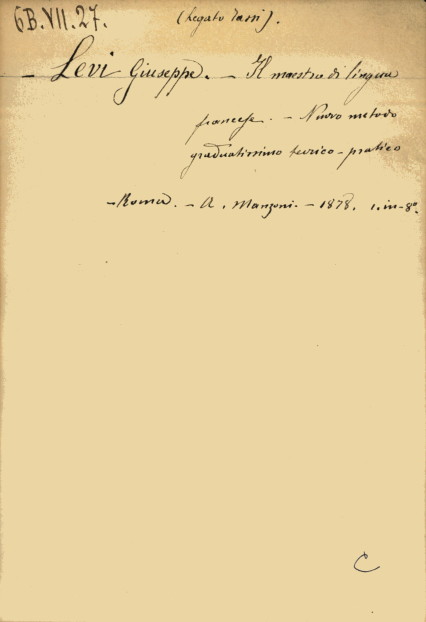 6B.VII.27. (Legato Tassi).
– Levi Giuseppe. – Il maestro di lingua
francese. – Nuovo metodo
gradualissimo teorico-pratico
– Roma. – A. Manzoni. – 1878. 1. in-8°.
C